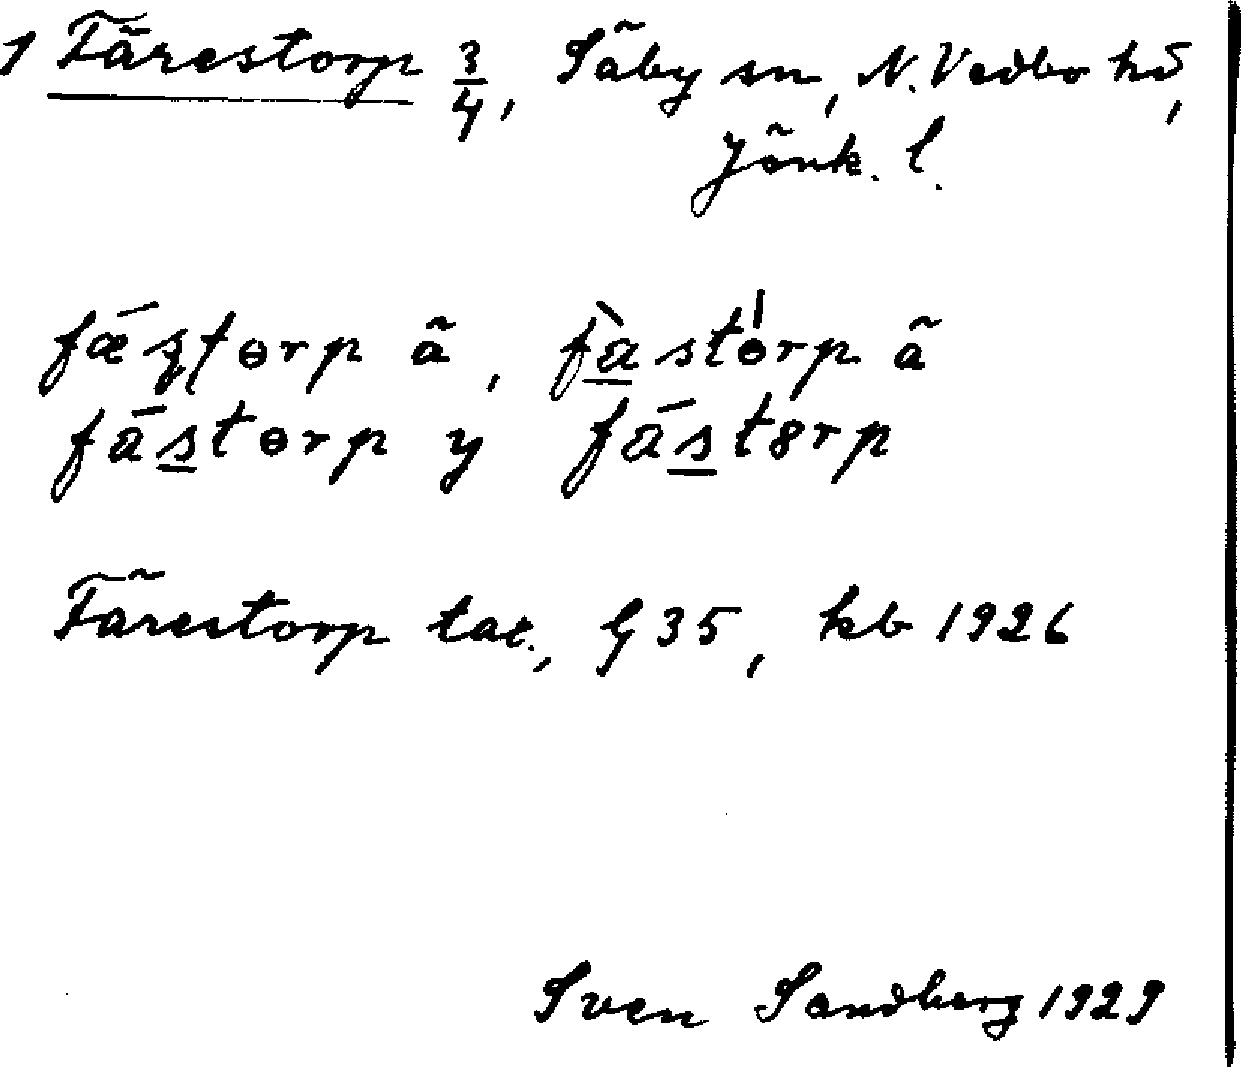 1 Färestorp 3/4, Säby sn, N. Vedbo hd,
Jönk. l.
fæ̋ʂʈɵrp ä, fàstɵ́rp ä
fástɵrp y fást8rp
Färestorp tac., G 35, kb 1926
Sven Sandberg 1929